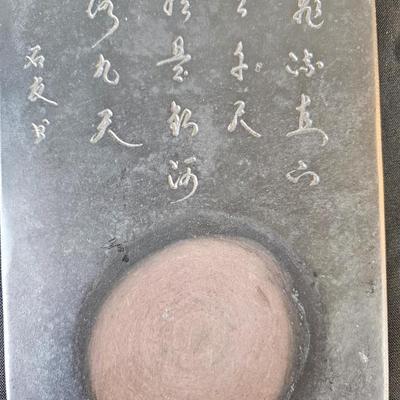 飛流直下
三千尺
疑是銀河
落九天
石友书